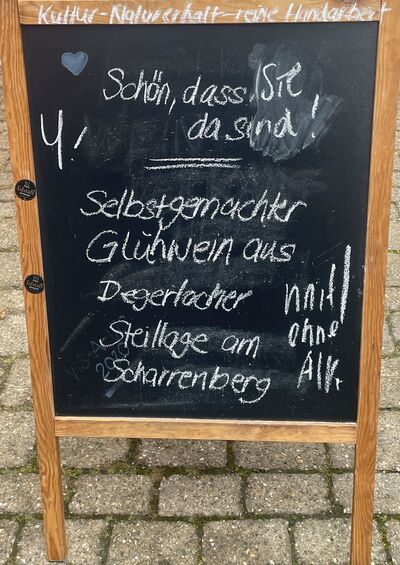 Kultur-Naturerhalt-reine Handarbeit
Schön, dass Sie
da sind!
Selbstgemachter
Glühwein aus
Degerlocher
Steillage am
Scharrenberg
mit/
ohne
Alk.
2020